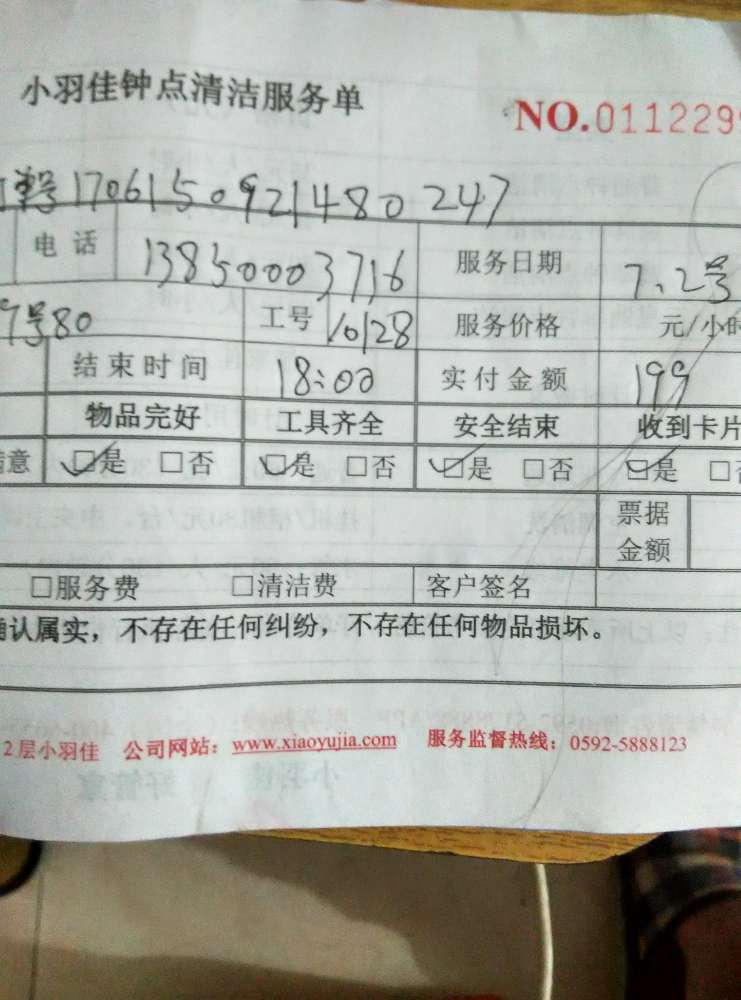 小羽佳钟点清洁服务单
NO.0112299
单号1706150921480247
电话 13850003716 服务日期 7.2号
9号80 工号 10128 服务价格 元/小时
结束时间 18:00 实付金额 199
物品完好 工具齐全 安全结束 收到卡片
意 □是 □否 □是 □否 □是 □否 □是
票据金额
□服务费 □清洁费 客户签名
确认属实，不存在任何纠纷，不存在任何物品损坏。
2层小羽佳 公司网站：www.xiaoyujia.com 服务监督热线：0592-5888123